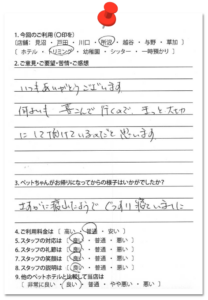 1. 今回のご利用(○印を)
[店舗: 見沼 ・ 戸田 ・ 川口 ・ 所沢 ・ 越谷 ・ 与野 ・ 草加 ]
[ ホテル ・ トリミング ・ 幼稚園 ・ シッター ・ 一時預かり ]
2. ご意見・ご要望・苦情・ご感想
いつもありがとうございます
何よりも 喜んで行くので、きっと大切
にして頂けているのだと思います
3. ペットちゃんがお帰りになってからの様子はいかがでしたか?
さすがに疲れたようで ぐっすり寝ていました
4. ご利用料金は [ 高い ・ 普通 ・ 安い ]
5. スタッフの対応は [ 良い ・ 普通 ・ 悪い ]
6. スタッフの礼節は [ 良い ・ 普通 ・ 悪い ]
7. スタッフの服装は [ 良い ・ 普通 ・ 悪い ]
8. スタッフの説明は [ 良い ・ 普通 ・ 悪い ]
9. 他のペットホテルと比較して当店は
[ 非常に良い ・ 良い ・ 普通 ・ やや悪い ・ 悪い ]